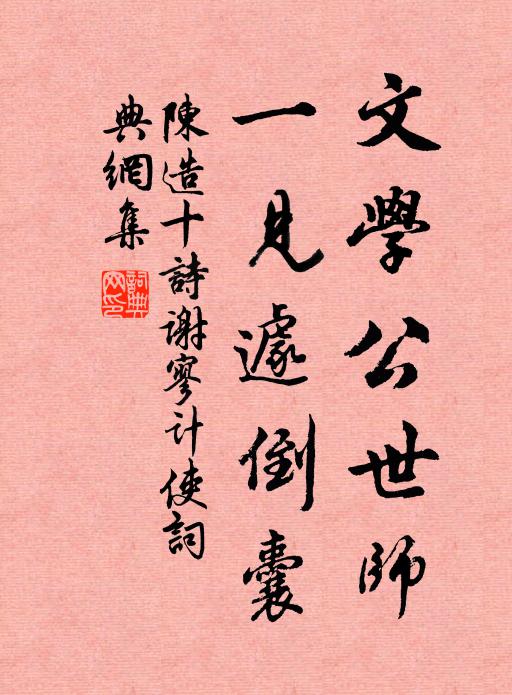 文學公世師
一見遽倒囊
陳造十詩謝寥計使詞
典網集
詞典網印